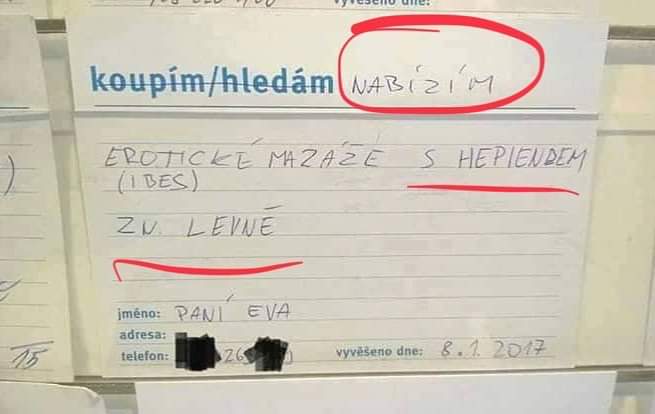 vyvěšeno dne:
koupím/hledám NABÍZÍM
EROTICKÉ MAZÁŽE S HEPIENDEM
(I BES)
ZN. LEVNĚ
jméno: PANÍ EVA
adresa:
telefon: 26 vyvěšeno dne: 8.1.2017
15